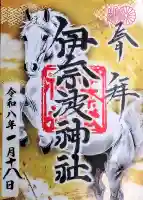 奉
伊奈波神社
令和八年一月十八日